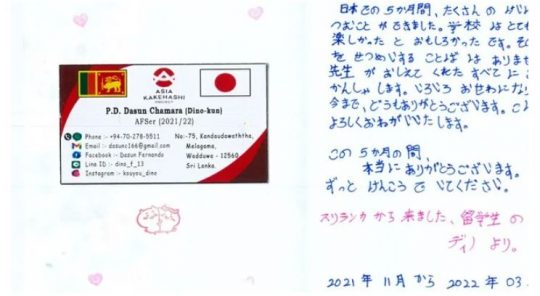 ASIA
KAKEHASHI
PROJECT
P.D. Dasun Chamara (Dino-kun)
AFSer (2021/22)
Phone :- +94-70-278-5911
Email :- dasunc166@gmail.com
Facebook :- Dasun Fernando
Line ID :- dino_f_13
Instagram :- kouyou_dino
No:-75, Kandaudawaththa,
Melegama,
Wadduwa - 12560
Sri Lanka.
日本での5か月間、たくさんの けい
つむことが できました。学校は とても
楽しかった と おもしろかった です。そ
を せつめいする ことば は ありませ
先生 が おしえて くれた すべて に こ
かんしゃ します。いろいろ おせわになり
今まで、どうもありがとうございます。これ
よろしくおねがいいたします。
この 5か月の 間、
本当に ありがとうございます。
ずっと けんこう で いてください。
スリランカ から 来ました、留学生 の
ディノ より。
2021 年 11月 から 2022 年 03